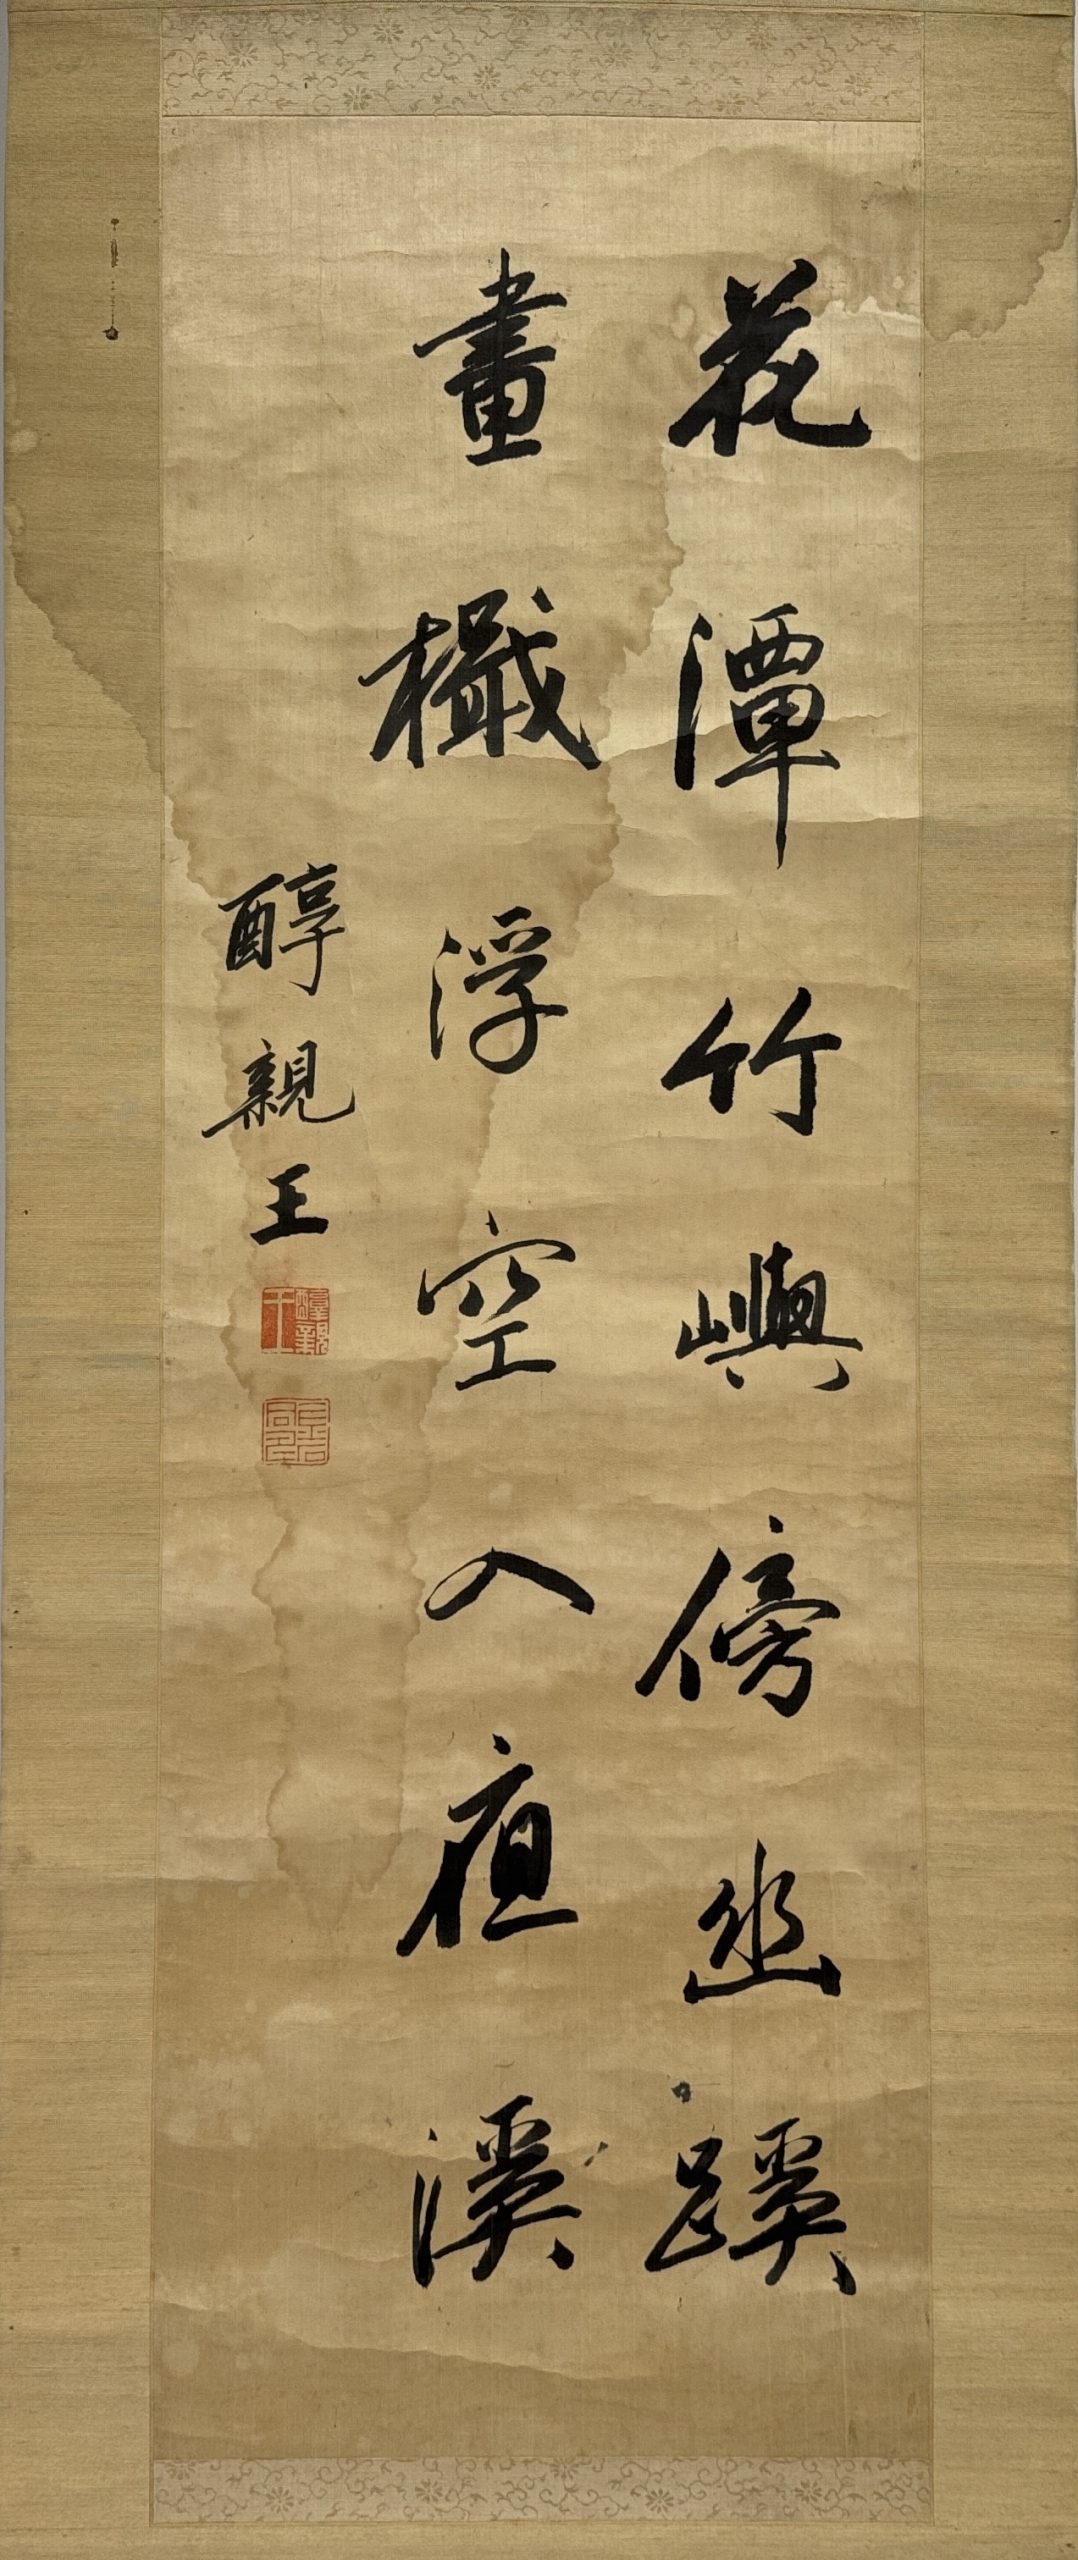 花潭竹嶼傍幽蹊
畫檝浮空入夜溪
醇親王
醇親王